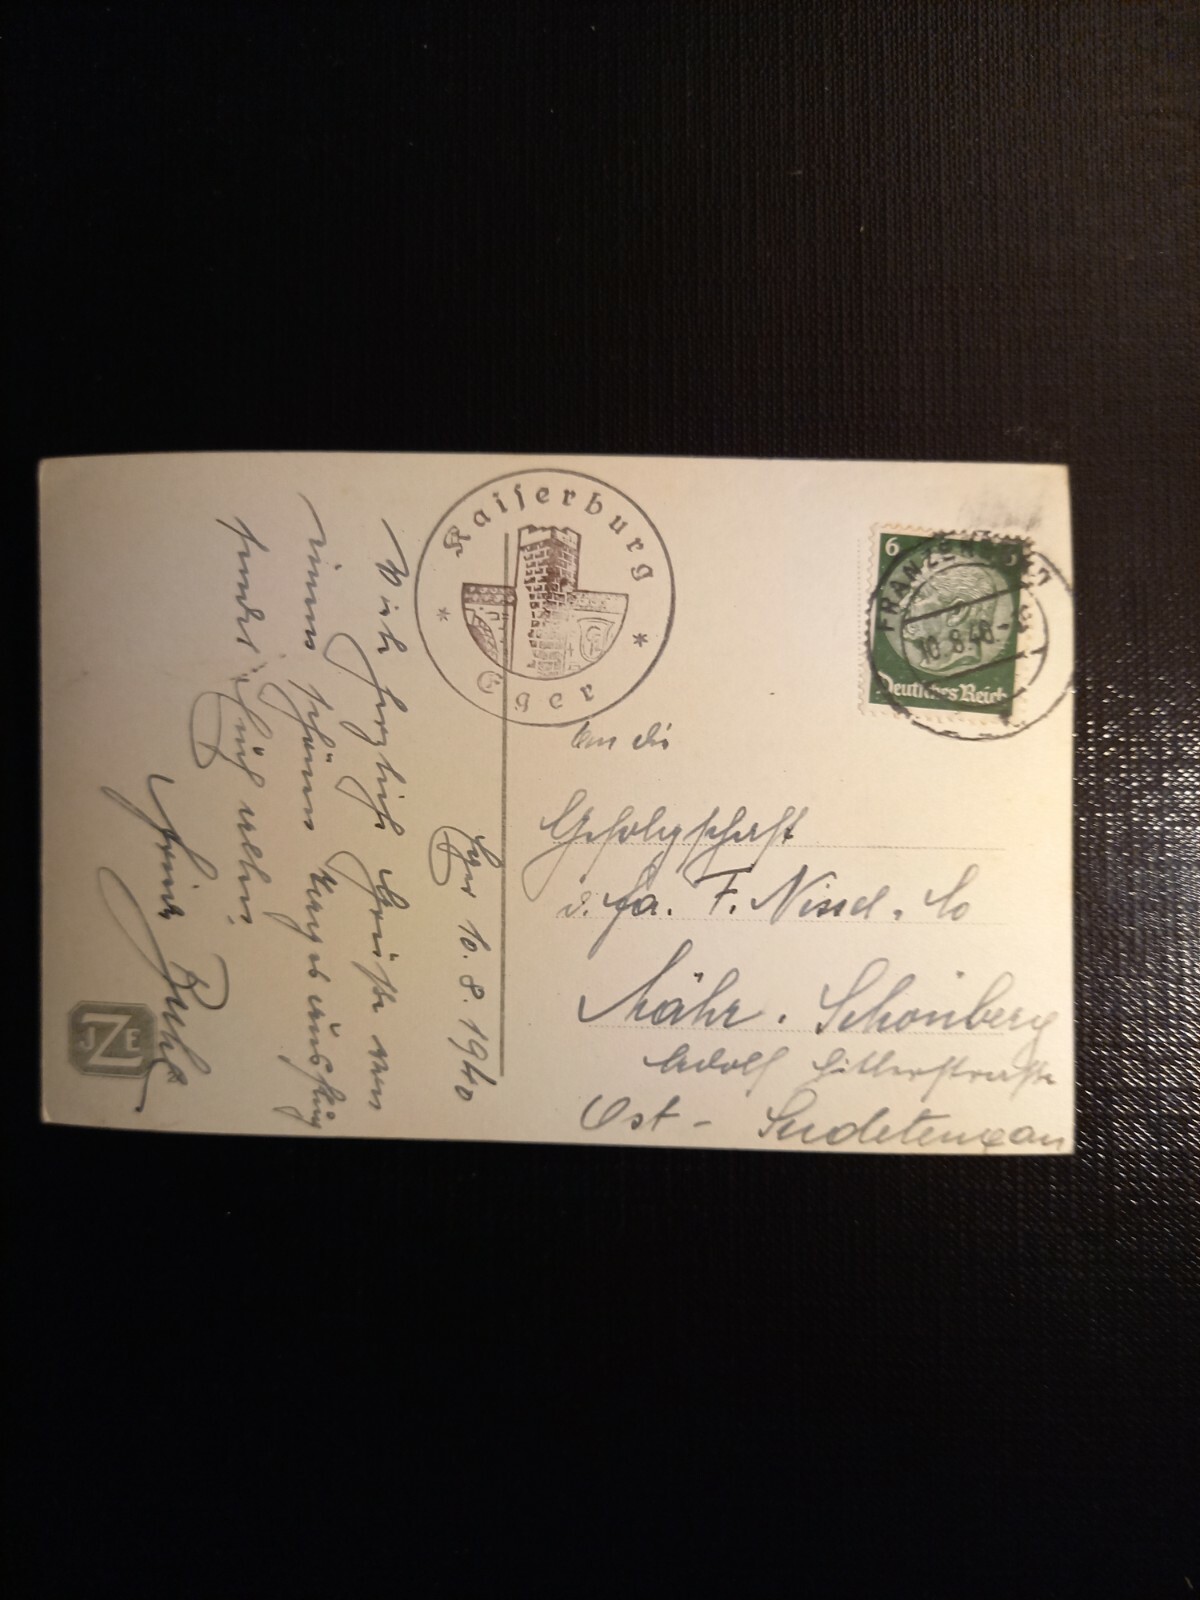 Eger 10.8.1940
Viele herzliche Grüße von
einem schönen Tagesausflug
sendet Euch allen
Kaiserburg
Eger
6 6
Deutsches Reich
FRANZENSBAD
10.8.40
An die
Gefolgschaft
d. Fa. F. Nissel. Co
Mähr. Schönberg
Adolf Hitlerstraße
Ost - Sudetengau
JZE